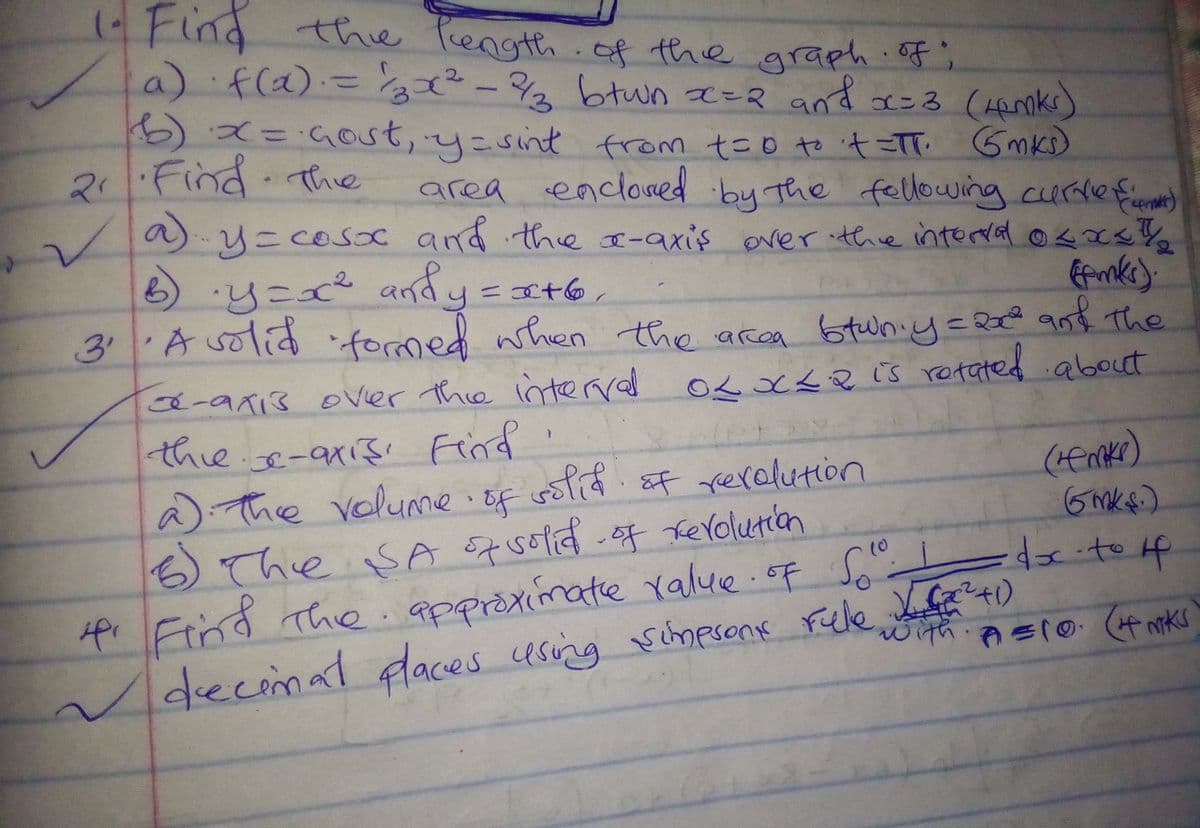 1. Find the length of the graph of;
a) f(x) = 1/3x² - 2/3 btwn x=2 and x=3 (4mks)
b) x = cost, y = sint from t=0 to t=π. (5mks)
2. Find the area enclosed by the following curves (4mks)
a) y = cosx and the x-axis over the interval 0≤x≤π/2
b) y=x² and y = x+6, (4mks).
3. A solid formed when the area btwn y=2x² and the
x-axis over the interval 0≤x≤2 is rotated about
the x-axis. Find
a) The volume of solid of revolution (4mks)
b) The SA of solid of revolution (5mks.)
4. Find the approximate value of ∫₀¹⁰ 1/√(x²+1) dx to 4
decimal places using simpsons rule with n=10. (4mks)